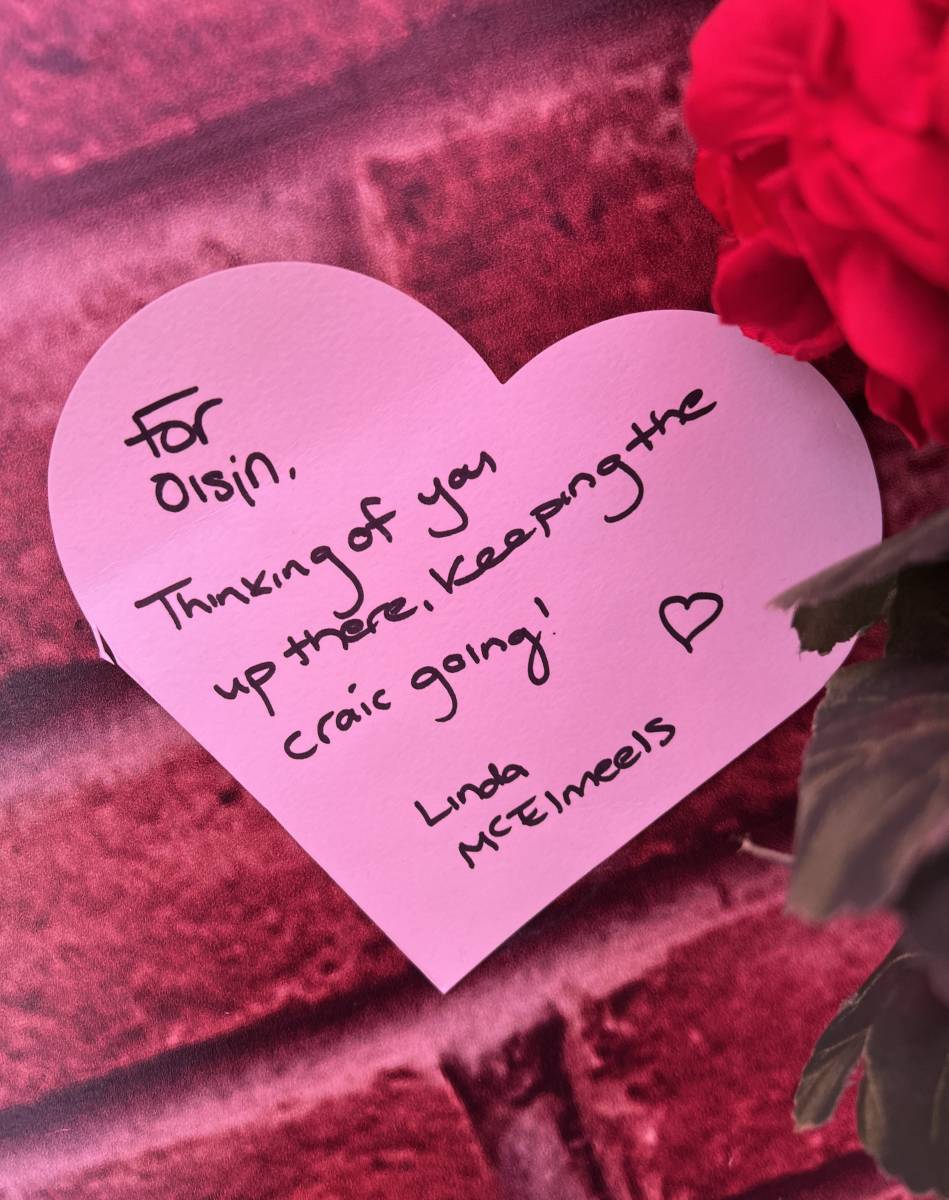 For
Oisin,
Thinking of you
up there, keeping the
craic going!
Linda
McElmeels